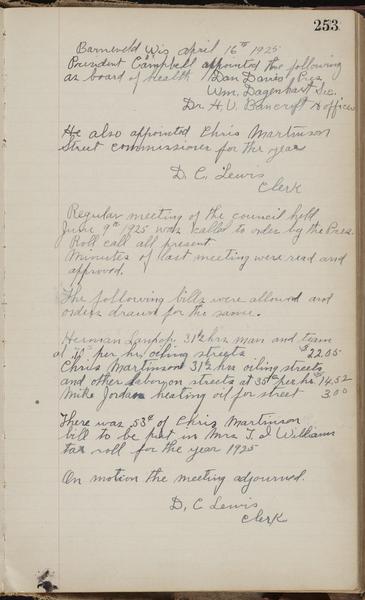 253
Barneveld Wis april 16th 1925
President Campbell appointed the following
as board of Health Dan Davis Pres
Wm. Dagenhart Sec.
Dr. H. V. Bancroft H officer
He also appointed Chris Martinson
Street commissioner for the year
D. C. Lewis
Clerk
Regular meeting of the council held
June 9th 1925 was called to order by the Pres.
Roll call all present
Minutes of last meeting were read and
approved.
The following bills were allowed and
orders drawn for the same.
Herman 31½ hrs man and team
at 70¢ per hr oiling streets $22.05
Chris Martinson 31½ hrs oiling streets
and other labor on streets at 35¢ per hr. 14.52
Mike Jordan heating oil for street 3.00
There was .53¢ of Chris Martinson
bill to be put in Mrs T. J Williams
tax roll for the year 1925
On motion the meeting adjourned.
D. C Lewis
Clerk